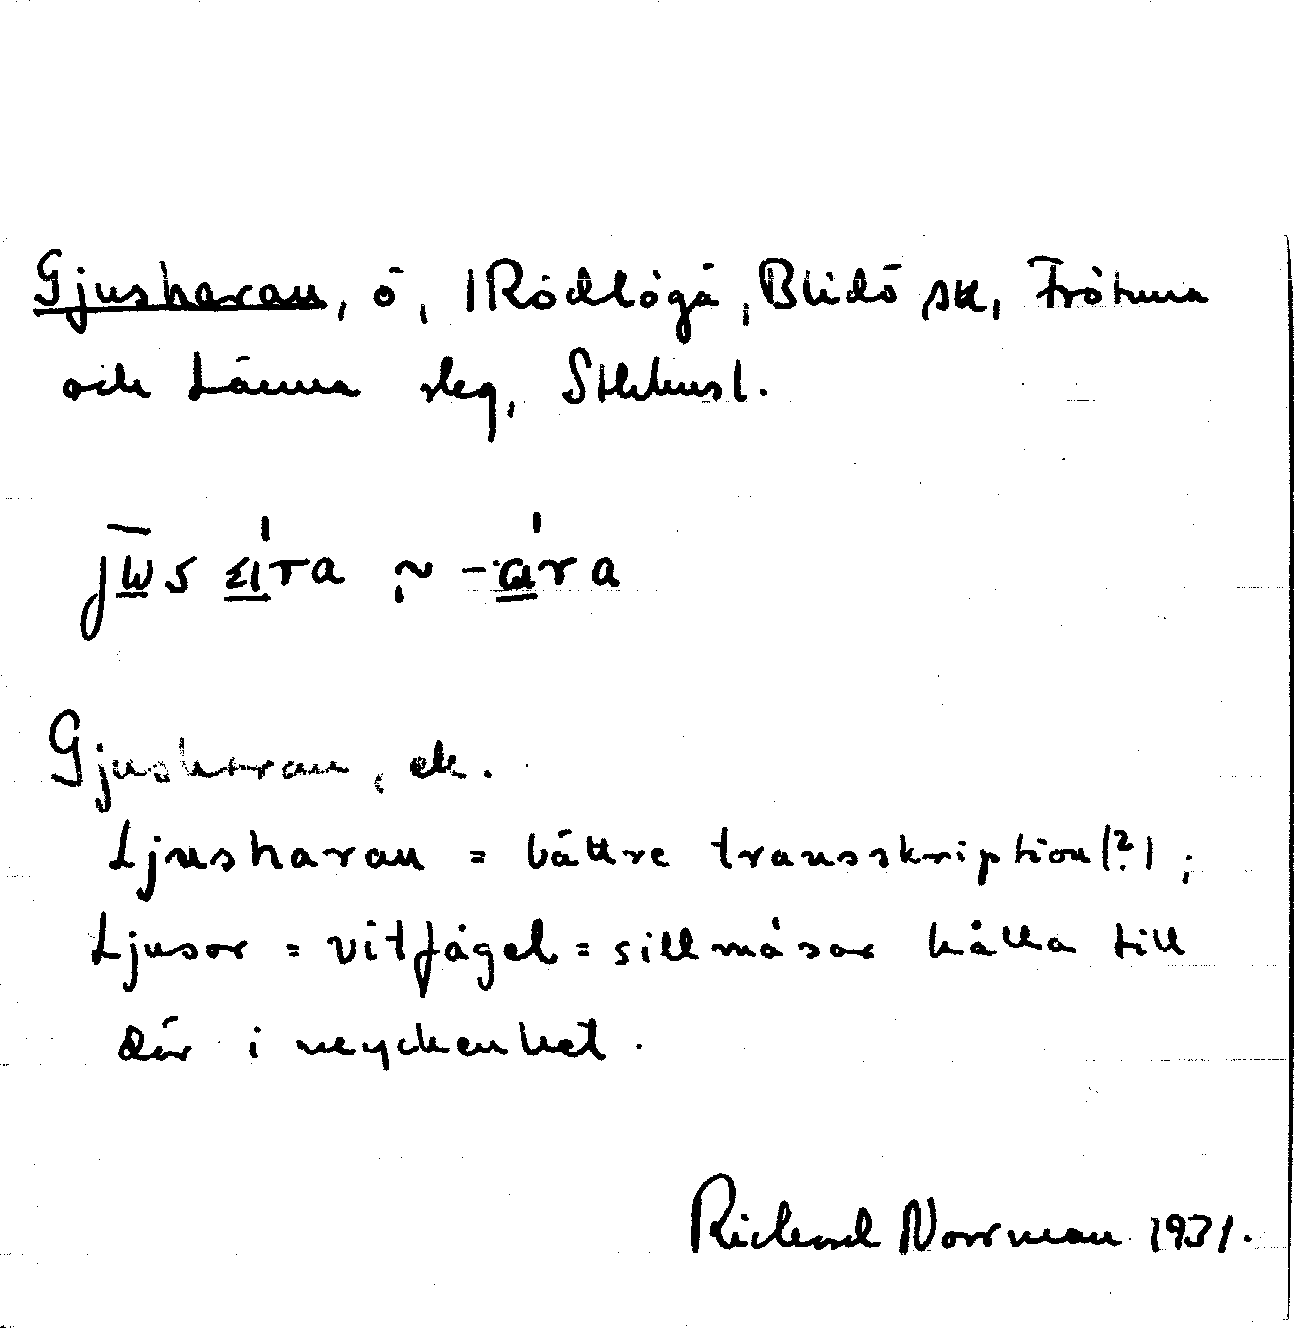 Gjusharan, ö, i Rödlöga, Blidö sk, Frötuna
och Länna slg, Sthlmsl.
Gjusharan, ek.
Ljusharan = bättre transskription (?);
Ljusor = vitfågel = sillmåsar hålla till
där i myckenhet.
Richard Norrman 1931.